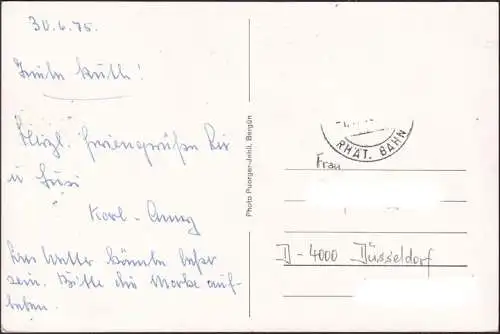 30.6.75.
Liebe Ruth!
Herzl. Feriengrüße Dir
u Susi
Karl-
Das Wetter könnte besser
sein. Bitte die Marke auf-
heben.
Photo Puorger-Jehli, Bergün
RHÄT. BAHN
Frau
D-4000 Düsseldorf